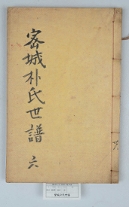 密城朴氏世譜
六